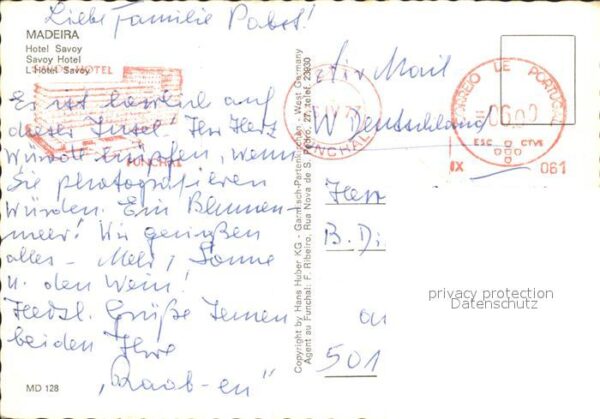 Liebe Familie Pabst!
MADEIRA
Hotel Savoy
Savoy Hotel
L'Hôtel Savoy
SAVOY HOTEL
Es ist herrlich auf
dieser Insel! Ihr Herz
würde hüpfen, wenn
Sie photografieren
würden. Ein Blumen-
meer! Wir genießen
alles - Meer, Sonne
u. den Wein!
Herzl. Grüße Ihnen
beiden Ihre
"Raab-en"
MD 128
Copyright by Hans Huber KG - Garmisch-Partenkirchen - West Germany
Agent au Funchal: F. Ribeiro, Rua Nova de S. Pedro, 27, telef. 23930
FUNCHAL
CORREIO DE PORTUGAL
06.00
ESC CTVS
IX 061
Air Mail
W Deutschland
Herr
B. Di
501
privacy protection
Datenschutz